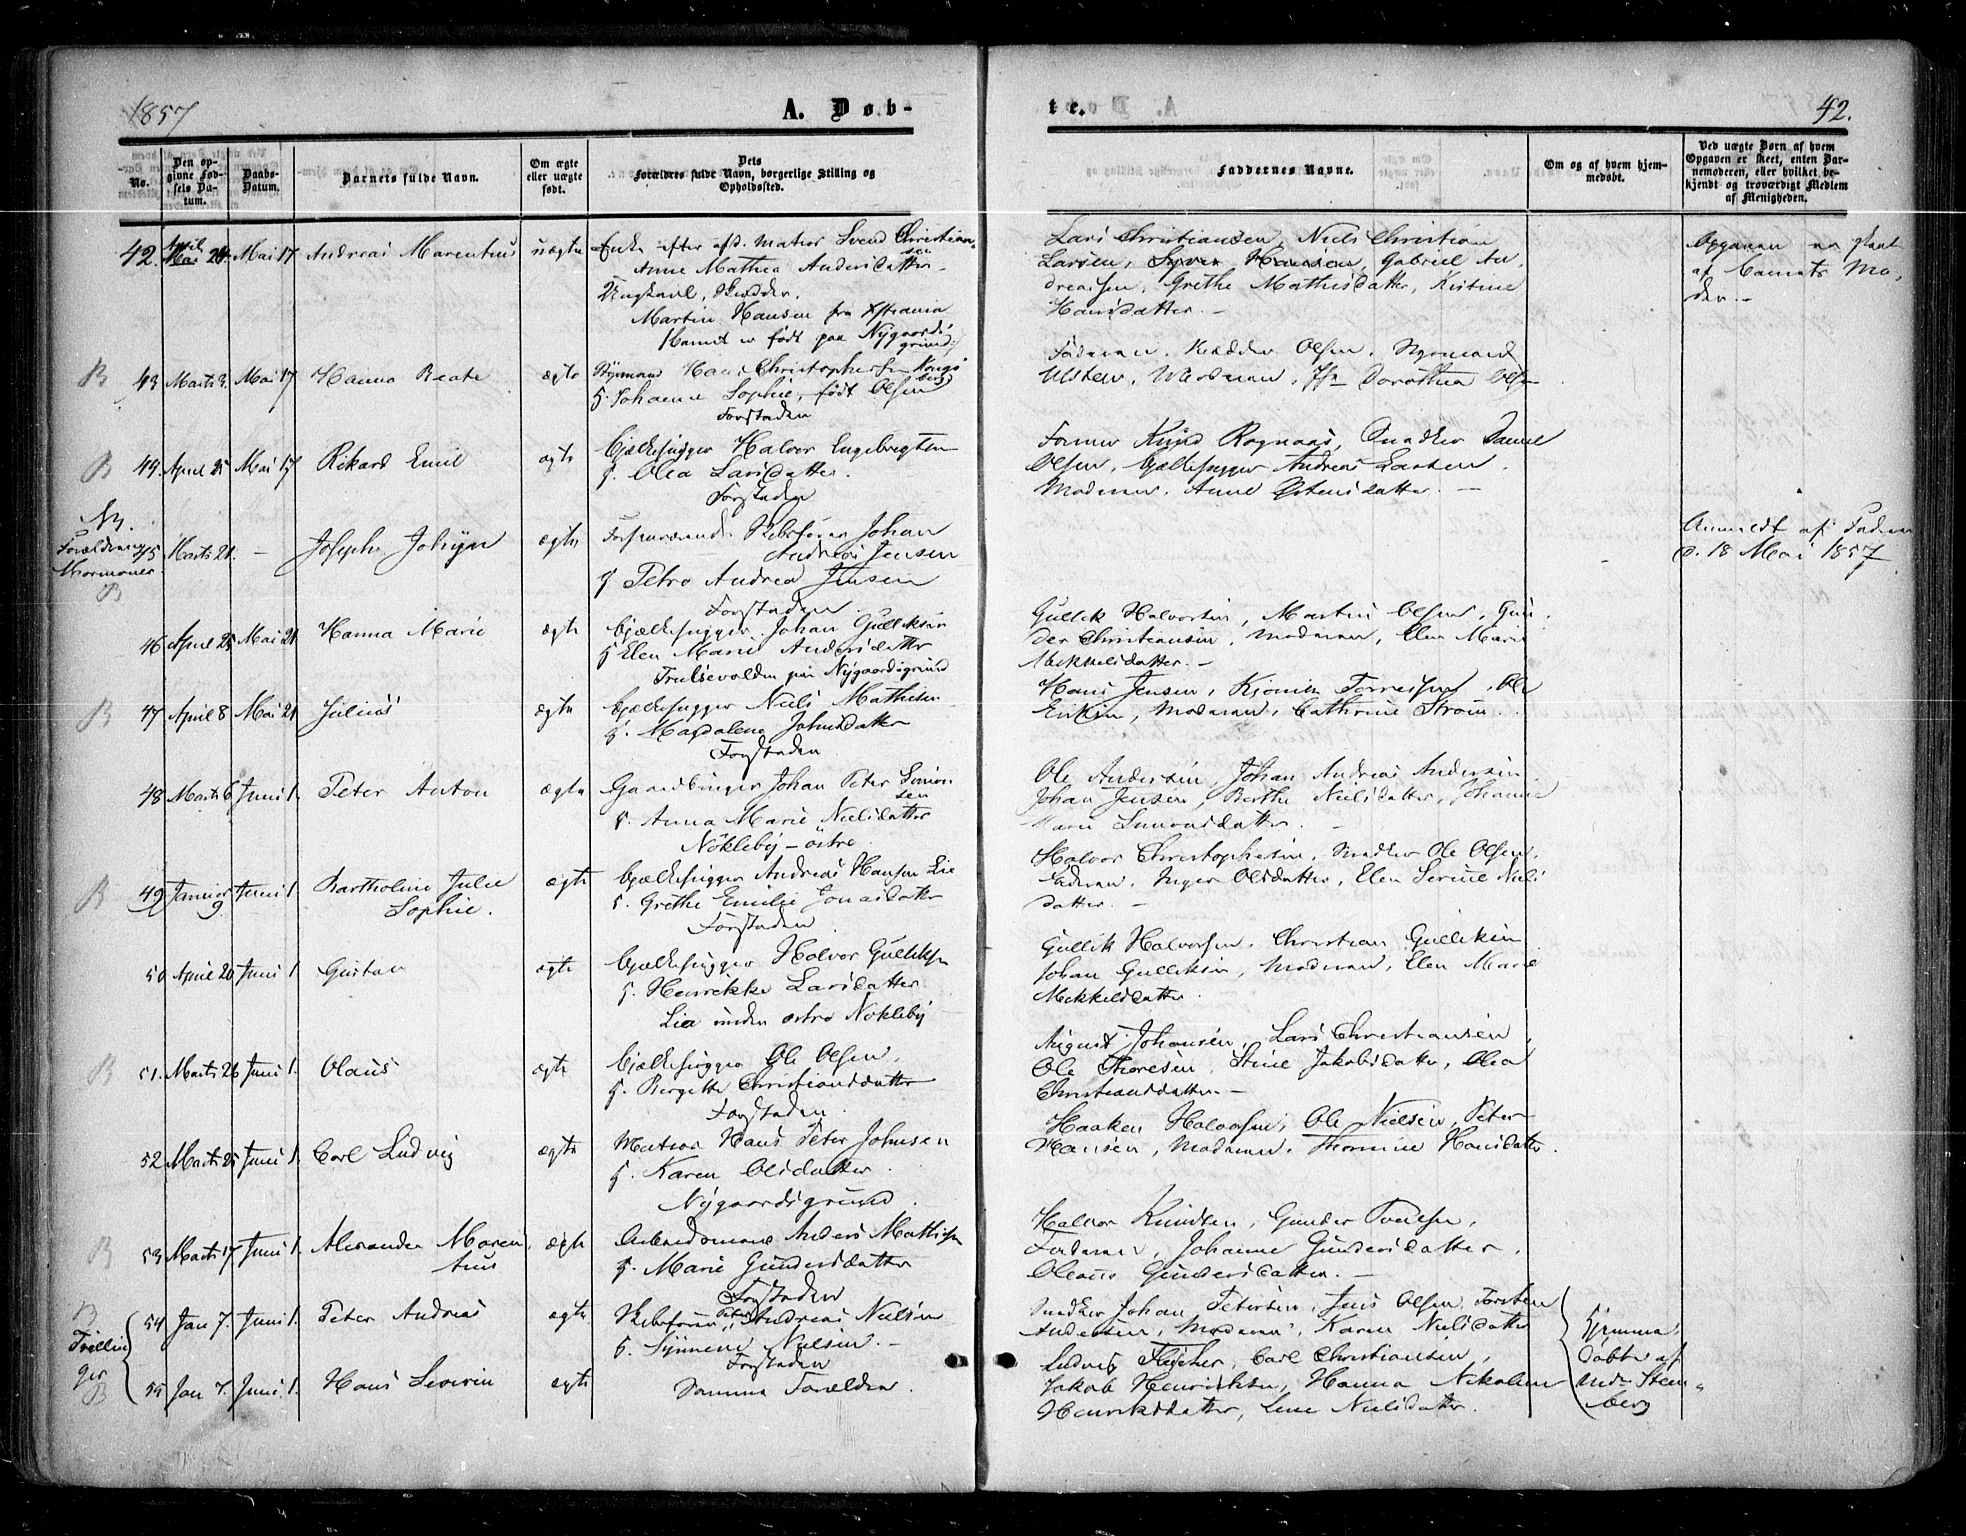 1857
A. Døb-
te.
42.
No.
Den op-
givne Fød-
sels Da-
tum.
Daabs-
Datum.
Barnets fulde Navn.
Om ægte
eller uægte
født.
Dets
Forældres fulde Navn, borgerlige Stilling og
Opholdssted.
Faddernes Navne.
Om og af hvem hjem-
medøbt.
Ved uægte Børn af hvem
Opgaven er skeet, enten Bar-
nemoderen, eller hvilket be-
kjendt og troværdigt Medlem
af Menigheden.
42. April Mai 20. Mai 17 Andreas Marentius uægte Enke efter afd. Matros Svend Christian-
sen
Anne Mathea Andersdatter
Ungkarl,
Martin Hansen fra Xstiania
Barnet er født paa Nygaards
grund
Lars Christiansen, Niels Christian
Larsen, Hansen, Gabriel An-
dreasen, Grethe Mathisdatter, Kistine
Hansdatter.
Opgaven
af Barnets Mo-
der.
B 43 Marts 9. Mai 17 Hanna Beate ægte Styrmand Hans Christophersen Kongs
berg
H. Johanne Sophie, født Olsen
Forstaden
Faderen, Olsen, Styrmand
Ulsten, Moderen, Jfr Dorothea Olsen
B 44. April 25 Mai 17 Rikard Emil ægte Bjælkehugger Halvor Engebregtsen
H. Olea Larsdatter.
Forstaden
Former Knud Rognaas, Snedker Samuel
Olsen, Bjælkehugger Andreas Larsen.
Moderen, Anne Østensdatter.
NB.
Forældrene
Mormoner
B
45 Marts 21. - Josephe ægte Forhenværende Rebslager Johan
Andreas Jensen
H Petra Andrea Jensen
Forstaden
Anmeldt af Faderen
d. 18 Mai 1857
46 April 25 Mai 21 Hanna Marie ægte Bjælkehugger Johan Gulliksen
H Elen Marie Andersdatter
Trulsevolden paa Nygaardsgrund
Gullik Halvorsen, Martin Olsen, Gun-
der Christiansen, Moderen, Elen Marie
Mekkelsdatter.
B 47 April 8 Mai 21 Julius ægte Bjælkehugger Niels Mathisen
H. Magdalena Johnsdatter
Forstaden
Hans Jensen, Torresen, Ole
Eriksen, Moderen, Cathrine Strøm.
48 Marts 6 Juni 1. Peter Anton ægte Gaardbruger Johan Peter Simon
sen
H. Anna Marie Nielsdatter
Nøkleby - østre
Ole Andersen, Johan Andreas Andersen
Johan Jensen, Berthe Nielsdatter, Johanne
Marie Simonsdatter.
B 49 Januar 9 Juni 1. Bartholine Julie
Sophie.
ægte Bjælkehugger Andreas Hansen Lie
H. Grethe Emilie Jonasdatter
Forstaden
Halvor Christophersen, Snedker Ole Olsen,
Faderen, Inger Olsdatter, Elen Serine Niels
datter.
50 April 20 Juni 1. Gustav ægte Bjælkehugger Halvor Gulliksen
H. Henrikke Larsdatter
Lia under østre Nøkleby
Gullik Halvorsen, Christian Gulliksen
Johan Gulliksen, Moderen, Elen Marie
Mekkelsdatter.
B 51. Marts 26 Juni 1. Olaus ægte Bjælkehugger Ole Olsen,
H. Bergitte Christiansdatter
Forstaden.
August Johansen, Lars Christiansen,
Ole Thoresen, Stine Jakobsdatter, Olea
Christiansdatter.
52 Marts 25 Juni 1. Carl Ludvig ægte Matros Hans Peter Johnsen
H. Karen Olsdatter.
Nygaardsgrund.
Haaken Halvorsen, Ole Nielsen, Peter
Hansen, Moderen, Thorine Hansdatter
B 53 Marts 17 Juni 1. Alexander Maren
tius
ægte Arbeidsmand Anders Mathisen
H. Marie Gundersdatter
Forstaden
Halvor Knudsen, Gunder
Faderen, Johanne Gundersdatter,
Oleane Gundersdatter.
B 54 Jan 7. Juni 1. Peter Andreas ægte Rebslager Peter Andreas Nielsen
H. Synnene Nielsen.
Forstaden
Snedker Johan Petersen, Jens Olsen, Torsten
Andersen, Moderen, Karen Nielsdatter
Tvillin
ger
B
55 Jan 7. Juni 1. Hans Severin ægte Samme Forældre.
Ludvig Fleischer, Carl Christiansen,
Jakob Henriksen, Hanna Nikoline
Henriksdatter, Lene Nielsdatter.
Hjemme-
døbte af
Md. Sten-
berg